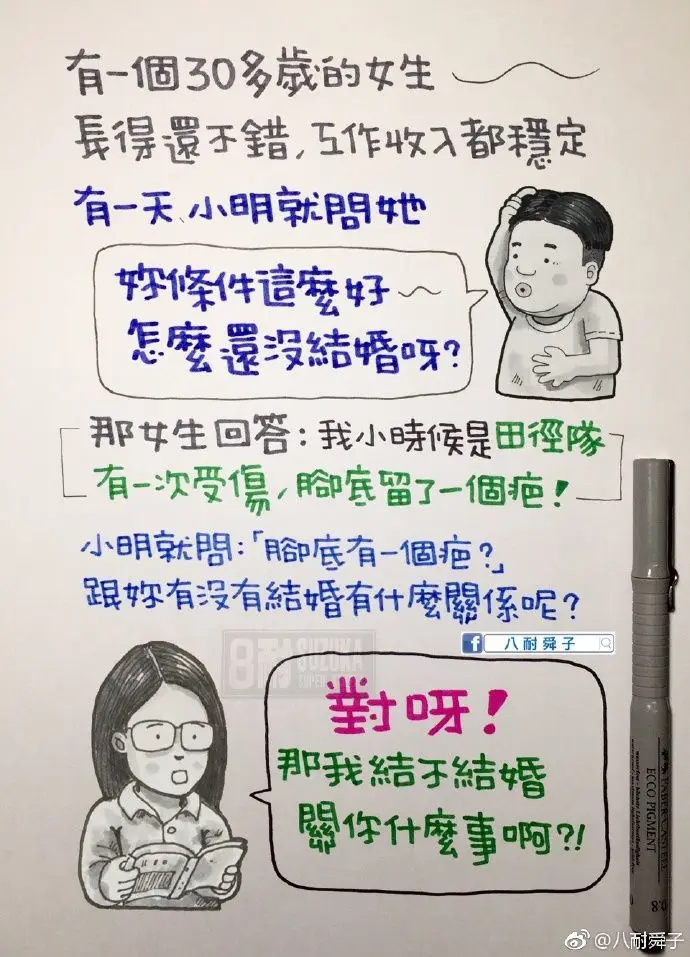 有一個30多歲的女生
長得還不錯,工作收入都穩定
有一天、小明就問她
妳條件這麼好~
怎麼還沒結婚呀?
那女生回答:我小時候是田徑隊
有一次受傷,腳底留了一個疤!
小明就問:「腳底有一個疤?」
跟妳有沒有結婚有什麼關係呢?
f 八耐舜子
8耐 SUZUKA
對呀!
那我結不結婚
關你什麼事啊?!
FABER-CASTELL
ECCO PIGMENT
0.8
@八耐舜子